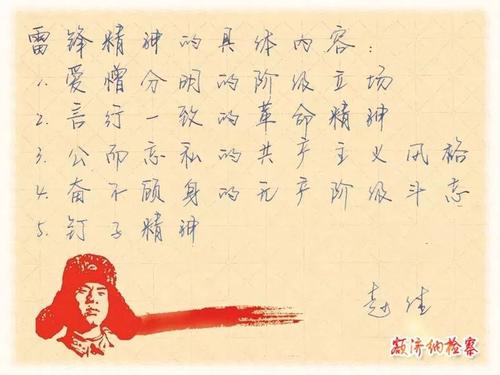 雷锋精神的具体内容:
1. 爱憎分明的阶级立场
2. 言行一致的革命精神
3. 公而忘私的共产主义风格
4. 奋不顾身的无产阶级斗志
5. 钉子精神
赵佳
额济纳检察